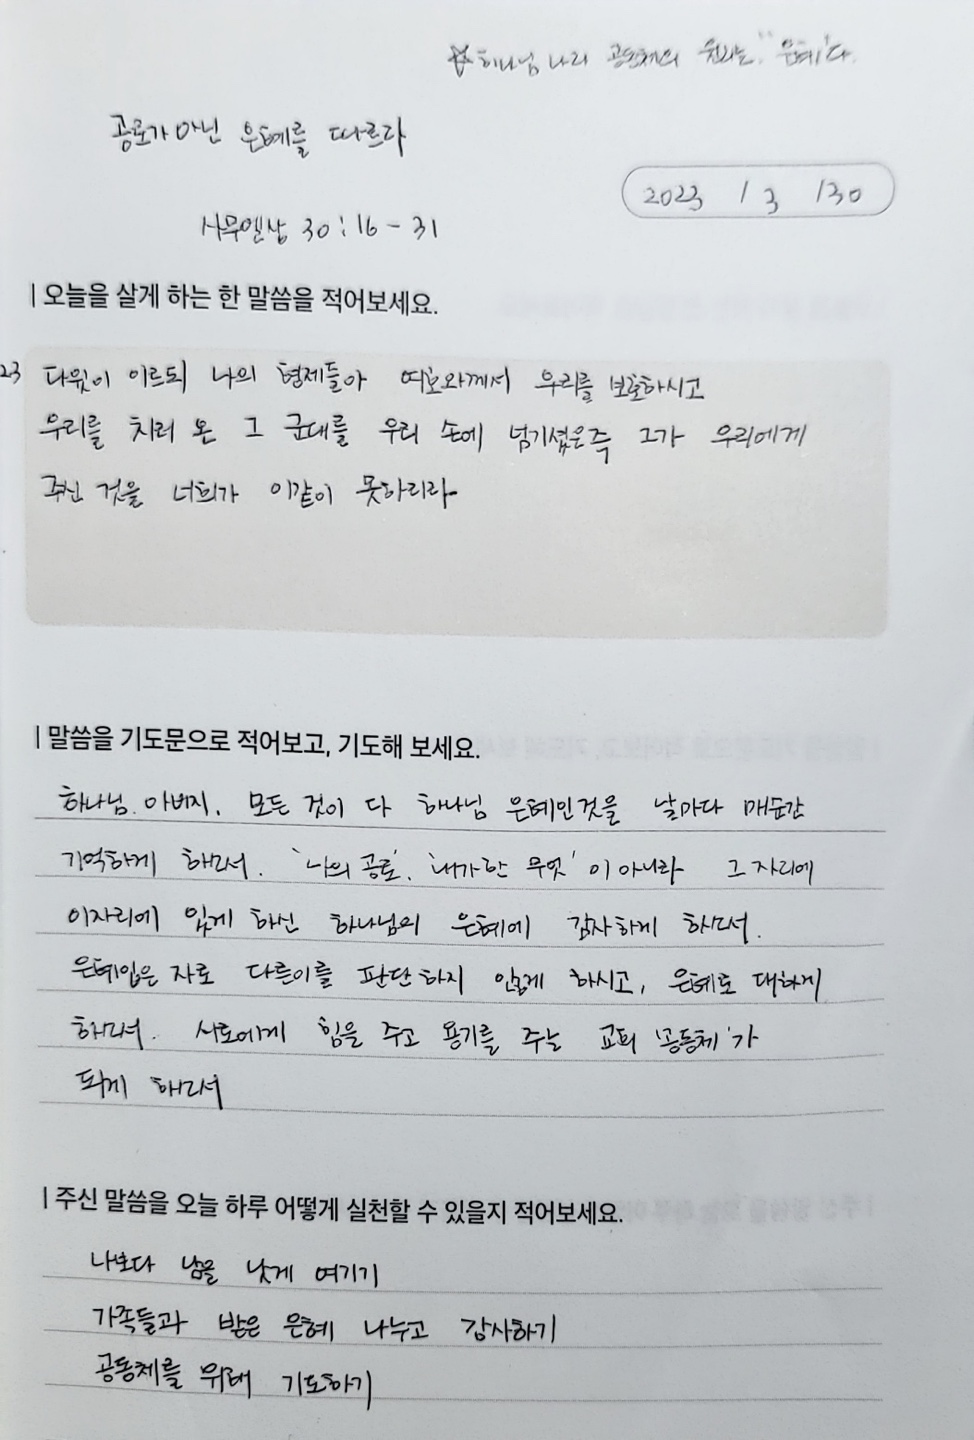 ☆하나님 나라 공동체의 원리는 "은혜"다.
공로가 아닌 은혜를 따르라
2023 / 3 / 30
사무엘상 30:16-31
| 오늘을 살게 하는 한 말씀을 적어보세요.
23 다윗이 이르되 나의 형제들아 여호와께서 우리를 보호하시고
우리를 치러 온 그 군대를 우리 손에 넘기셨은즉 그가 우리에게
주신 것을 너희가 이같이 못하리라
| 말씀을 기도문으로 적어보고, 기도해 보세요.
하나님 아버지, 모든 것이 다 하나님 은혜인것을 날마다 매순간
기억하게 하소서. '나의 공로', '내가 한 무엇' 이 아니라 그 자리에
이자리에 있게 하신 하나님의 은혜에 감사하게 하소서.
은혜입은 자로 다른이를 판단하지 않게 하시고, 은혜로 대하게
하소서. 서로에게 힘을 주고 용기를 주는 교회 '공동체'가
되게 하소서
| 주신 말씀을 오늘 하루 어떻게 실천할 수 있을지 적어보세요.
나보다 남을 낫게 여기기
가족들과 받은 은혜 나누고 감사하기
공동체를 위해 기도하기